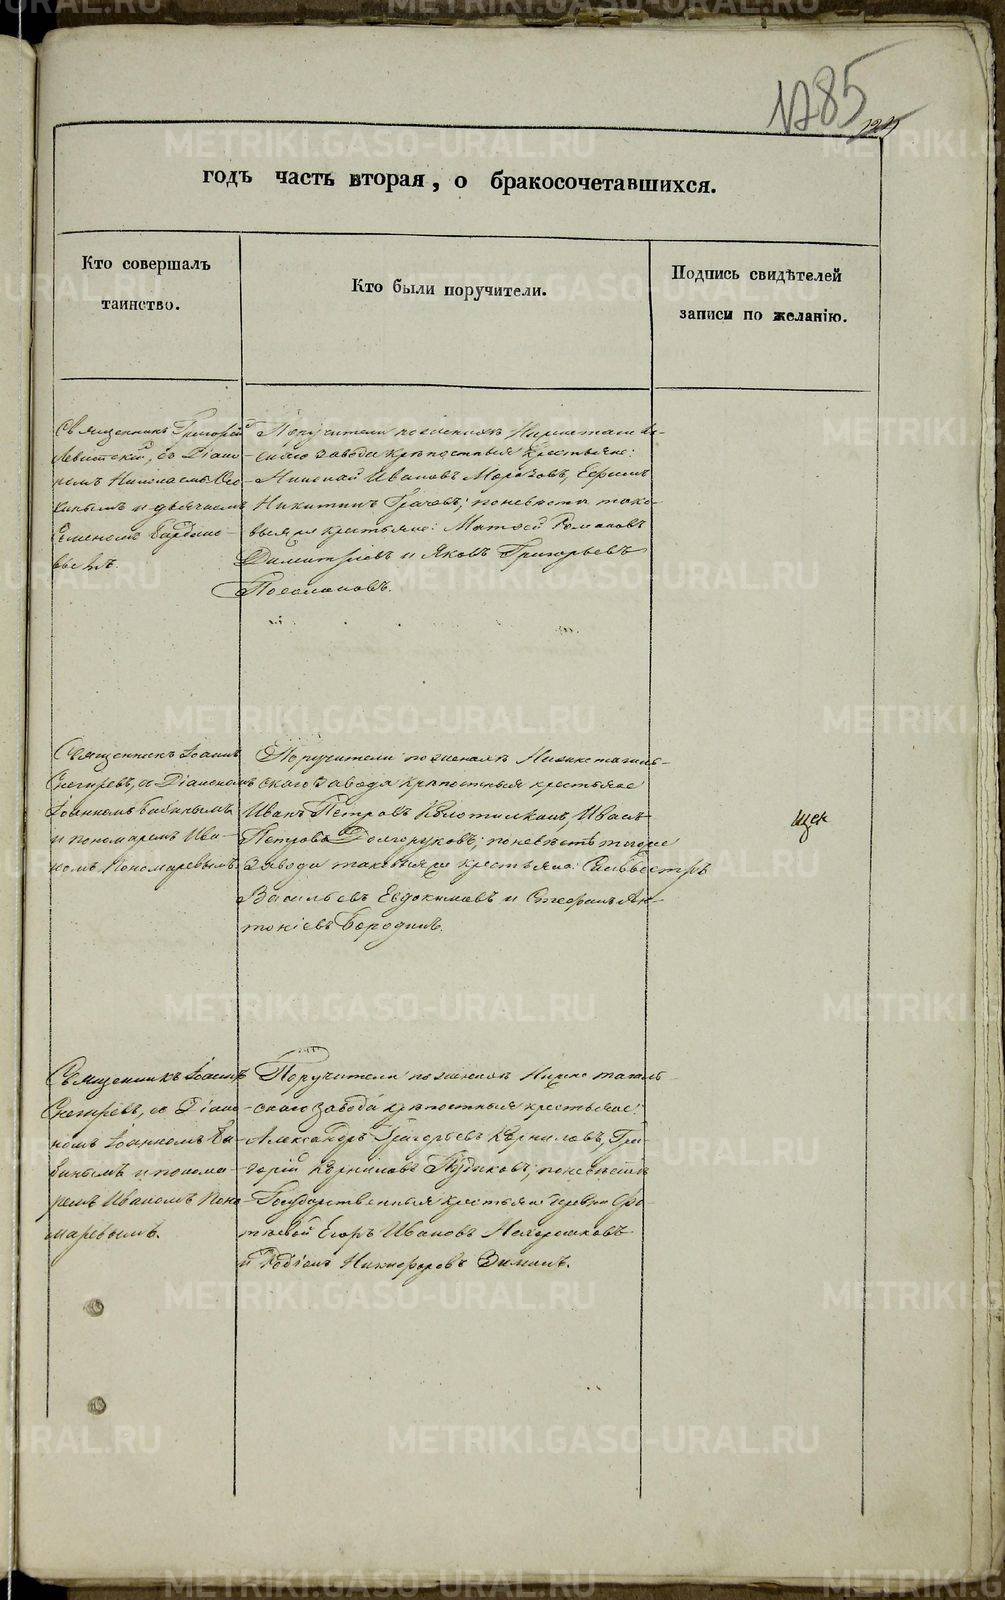 1785
годъ часть вторая, о бракосочетавшихся.
Кто совершалъ
таинство.
Кто были поручители.
Подпись свидѣтелей
записи по желанію.
Священникъ Григорій
Левитскій, съ Діако-
номъ Николаемъ
и дьячкомъ
Семеномъ
Поручители по женихѣ Нижнетагиль-
скаго завода крѣпостные крестьяне:
Николай Ивановъ Морозовъ, Ефимъ
Никитинъ Грачевъ; по невѣстѣ тако-
выеже крестьяне: Матвей Романовъ
Димитріевъ и Яковъ Григорьевъ
Священникъ Іоаннъ
Снегиревъ, съ Діакономъ
Іоанномъ Бабинымъ
и пономаремъ Ива-
номъ Пономаревымъ.
Поручители по женихѣ Нижнетагиль-
скаго завода крѣпостные крестьяне
Иванъ Петровъ Иванъ
Петровъ Долгоруковъ; по невѣстѣ тогоже
Завода таковыеже крестьяне: Сильвестръ
Васильевъ Евдокимовъ и Стефанъ Ан-
тоніевъ Бородинъ.
Священникъ Іоаннъ
Снегиревъ, съ Діако-
номъ Іоанномъ Ба-
бинымъ и понома-
ремъ Иваномъ Поно-
маревымъ.
Поручители по женихѣ Нижнетагиль-
скаго завода крѣпостные крестьяне:
Александръ Григорьевъ Корниловъ, Гри-
горій Корниловъ по невѣстѣ
Государственные крестьяне деревни
Егоръ Ивановъ
и Родіонъ Никифоровъ Зиминъ.
METRIKI.GASO-URAL.RU